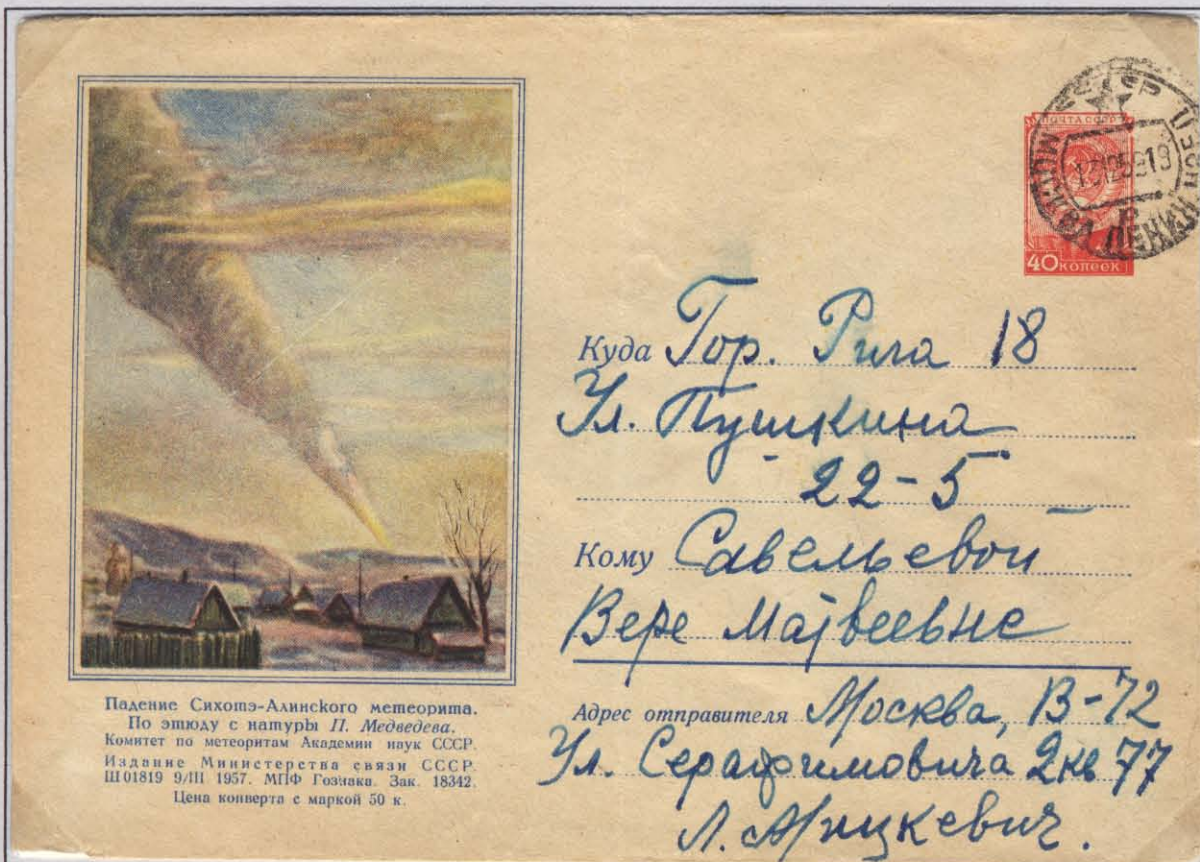 ПОЧТА СССР
40 КОПЕЕК
Куда Гор. Рига 18
Ул. Пушкина
22-5
Кому Савельевой
Вере Матвеевне
Адрес отправителя Москва, В-72
Ул. Серафимовича 2кв 77
Л.
Падение Сихотэ-Алинского метеорита.
По этюду с натуры П. Медведева.
Комитет по метеоритам Академии наук СССР.
Издание Министерства связи СССР.
Ш 01819 9/III 1957. МПФ Гознака. Зак. 18342.
Цена конверта с маркой 50 к.